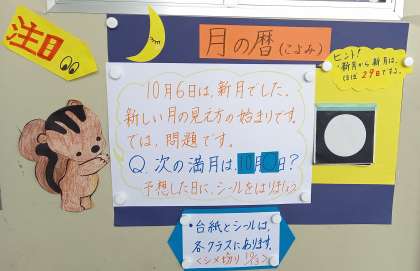 注目
月の暦(こよみ)
ヒント!
・新月から新月は、
ほぼ29日です。
10月6日は、新月でした。
新しい月の見え方の始まりです。
では、問題です。
Q.次の満月は、10月◯日?
予想した日に、シールをはりましょう
・台紙とシールは、
各クラスにあります。